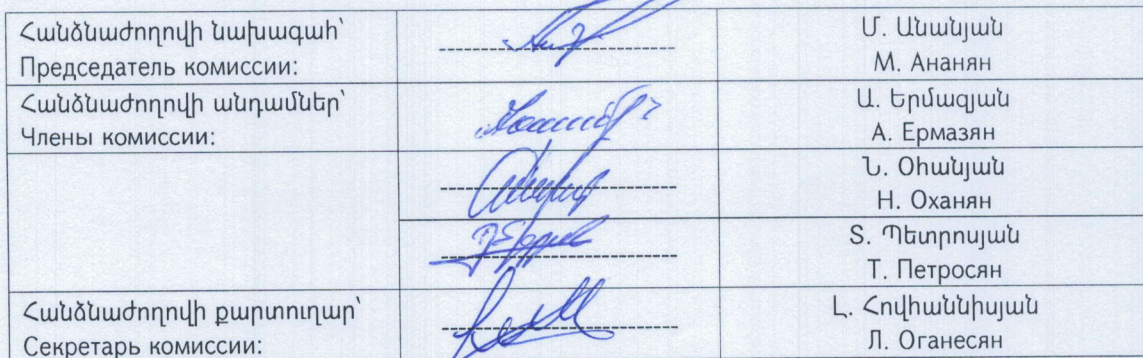 Հանձնաժողովի նախագահ՝
Председатель комиссии:
Մ. Անանյան
М. Ананян
Հանձնաժողովի անդամներ՝
Члены комиссии:
Ա. Երմազյան
А. Ермазян
Ն. Օհանյան
Н. Оханян
Տ. Պետրոսյան
Т. Петросян
Հանձնաժողովի քարտուղար՝
Секретарь комиссии:
Լ. Հովհաննիսյան
Л. Оганесян